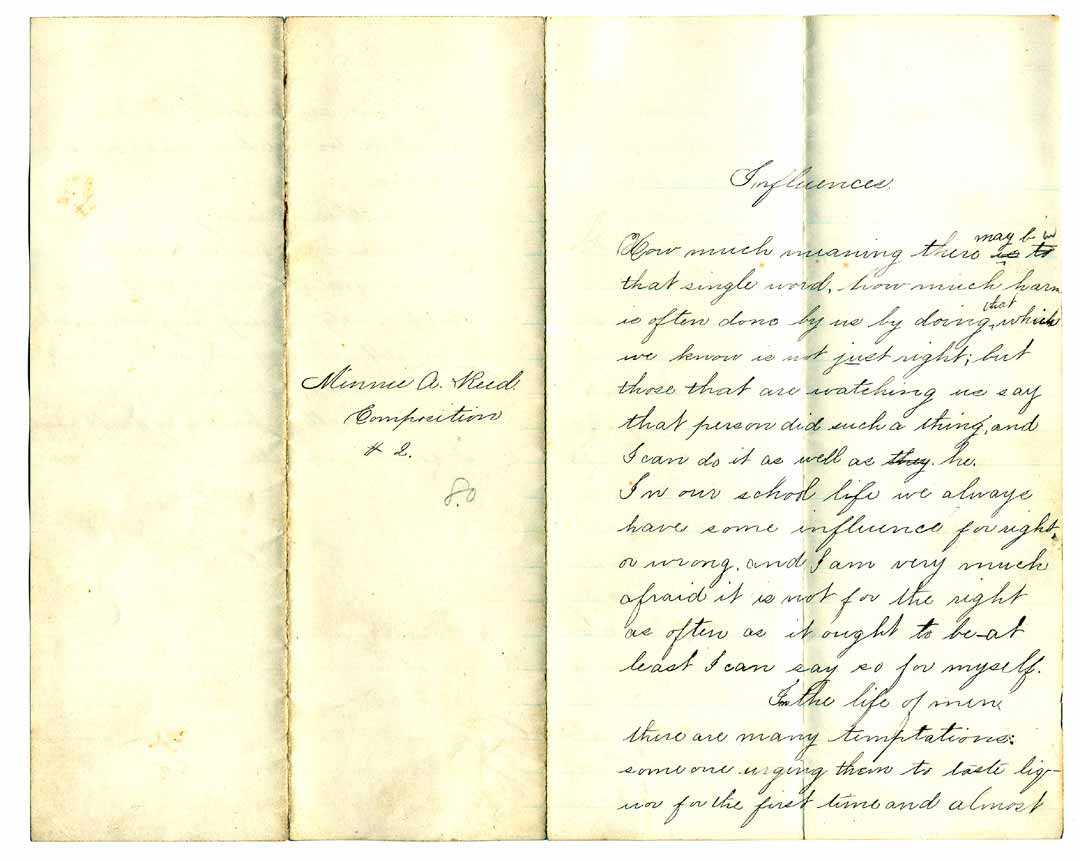 Minnie A. Reed.
Composition
# 2.
80
Influences.
may be in
How much meaning there is to
that single word, how much harm
that
is often done by us by doing, which
we know is not just right; but
those that are watching us say
that person did such a thing, and
I can do it as well as they. he.
In our school life we always
have some influence for right,
or wrong, and I am very much
afraid it is not for the right
as often as it ought to be-at
least I can say so for myself.
In the life of men
there are many temptations:
some one urging them to taste liq-
uor for the first time and almost